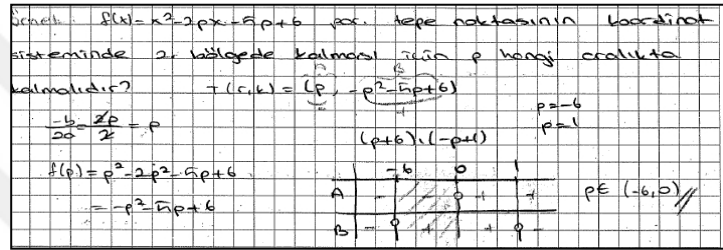 Örnek: f(x)=x²-2px-5p+6 par. tepe noktasının koordinat
sisteminde 2. bölgede kalması için p hangi aralıkta
kalmalıdır? T(r,k) = (p, -p²-5p+6)
A B
- +
-b/2a = 2p/2 = p
p=-6
p=1
(p+6).(-p+1)
f(p)=p²-2p²-5p+6
= -p²-5p+6
-6 0 1
A - - + +
B - + + -
p∈ (-6,0)//